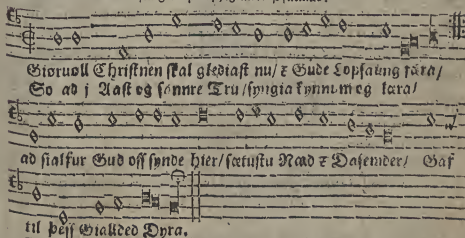 Giørvöll Christnen skal glediast nu/ z Gude Lopsaung færa/
So ad j Aast og sannre Tru/ syngia kynnum og læra/
ad sialfur Gud oss synde hier/ sætustu Naad z Dasemder/ Gaf
til þess Giallded Dyra.